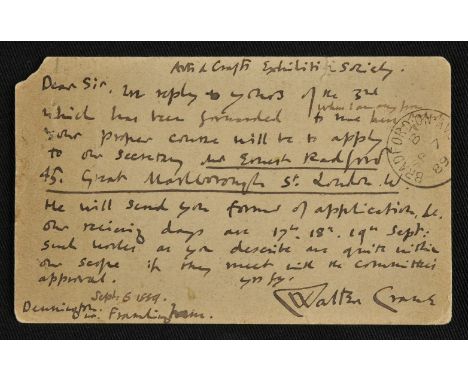 Arts & Crafts Exhibition Society.
Dear Sir. In reply to yours of the 3rd
which has been forwarded to me here
(when I am away from
your proper course will be to apply
to our Secretary Mr Ernest Radford
45. Great Marlborough St. London. W.
He will send you forms of application, &c.
our receiving days are 17th. 18th. 19th Sept:
such works as you describe are quite within
our scope if they meet with the committee's
approval. yrs fy.
Walter Crane
Sept: 6 1889.
Dennington.
Framlingham.
BRADFORD
SP 7
89